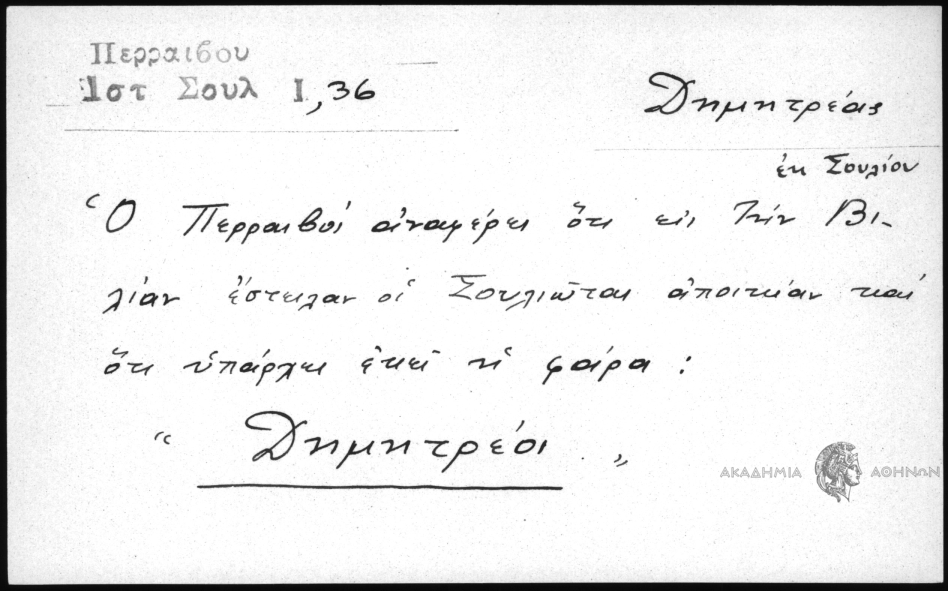 Περραιβου
Ιστ Σουλ Ι,36
Δημητρέας
ἐκ Σουλίου
Ὁ Περραιβὸς ἀναφέρει ὅτι εἰς τὴν Βι-
λίαν ἔστειλαν οἱ Σουλιῶται ἀποικίαν καὶ
ὅτι ὑπάρχει ἐκεῖ ἡ φάρα :
“ Δημητρέοι „
ΑΚΑΔΗΜΙΑ ΑΘΗΝΩΝ